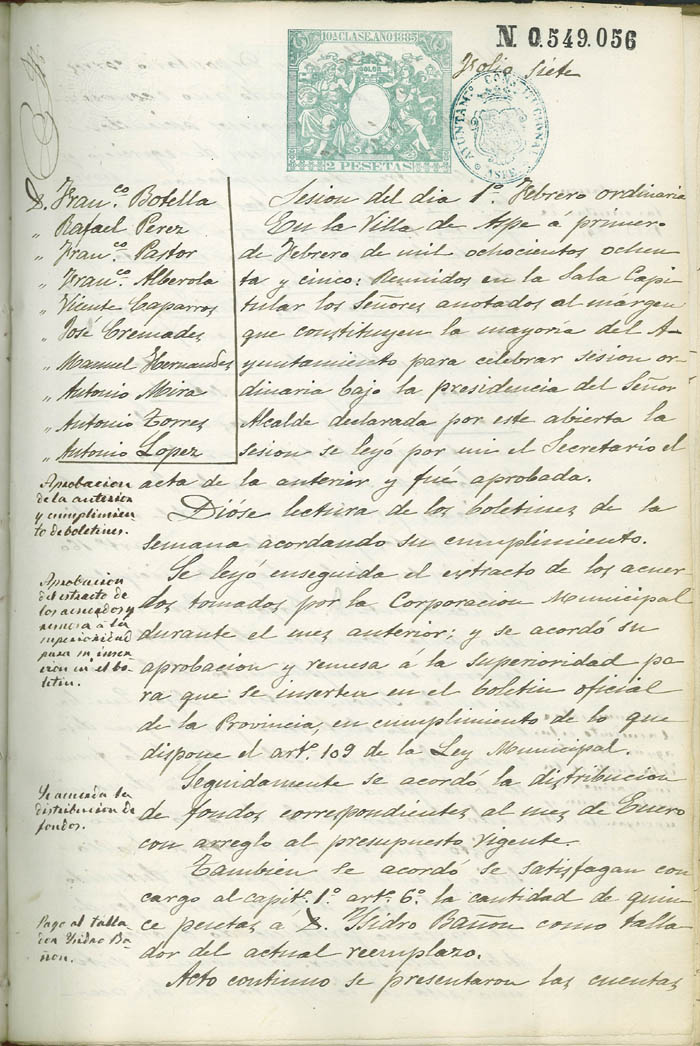 N 0.549.056
10ª CLASE. AÑO 1885
2 PESETAS
Folio siete
AYUNTAM.º CONSTITUCIONAL
ASPE
D. Fran.co Botella
" Rafael Perez
" Fran.co Pastor
" Fran.co Alberola
" Vicente Caparros
" José Cremades
" Manuel Hernandes
" Antonio Mira
" Antonio Torres
" Antonio Lopez
Sesion del dia 1º. Febrero ordinaria
En la Villa de Aspe á primero
de Febrero de mil ochocientos ochen
ta y cinco: Reunidos en la Sala Capi
tular los Señores anotados al márgen
que constituyen la mayoria del A-
yuntamiento para celebrar sesion or-
dinaria bajo la presidencia del Señor
Alcalde declarada por este abierta la
sesion se leyó por mi el Secretario el
acta de la anterior y fué aprobada.
Aprobacion
de la anterior
y cumplimien
to de boletines.
Dióse lectura de los boletines de la
semana acordando su cumplimiento.
Aprobacion
del estracto de
los acuerdos y
remesa á la
superioridad
para su inser
cion en el bo
letin.
Se leyó enseguida el estracto de los acuer
dos tomados por la Corporacion Municipal
durante el mes anterior; y se acordó su
aprobacion y remesa á la superioridad pa
ra que se inserten en el boletin oficial
de la Provincia, en cumplimiento de lo que
dispone el artº. 109 de la Ley Municipal.
Se acuerda la
distribucion de
fondos.
Seguidamente se acordó la distribucion
de fondos correspondientes al mes de Enero
con arreglo al presupuesto vigente.
Pago al talla
dor Ysidro Ba
ñon.
Tambien se acordó se satisfagan con
cargo al capitº. 1º. artº. 6º. la cantidad de quin
ce pesetas a D. Ysidro Bañon como talla
dor del actual reemplazo.
Acto continuo se presentaron las cuentas